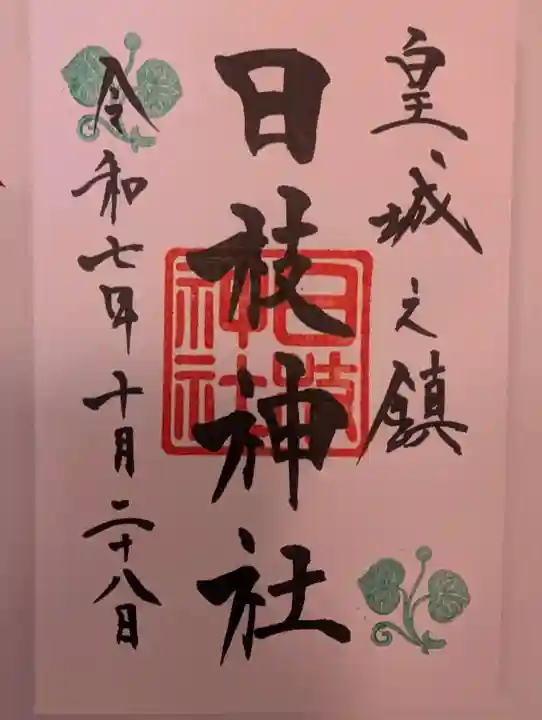 皇城之鎮
日枝神社
日枝神社
令和七年十月二十八日